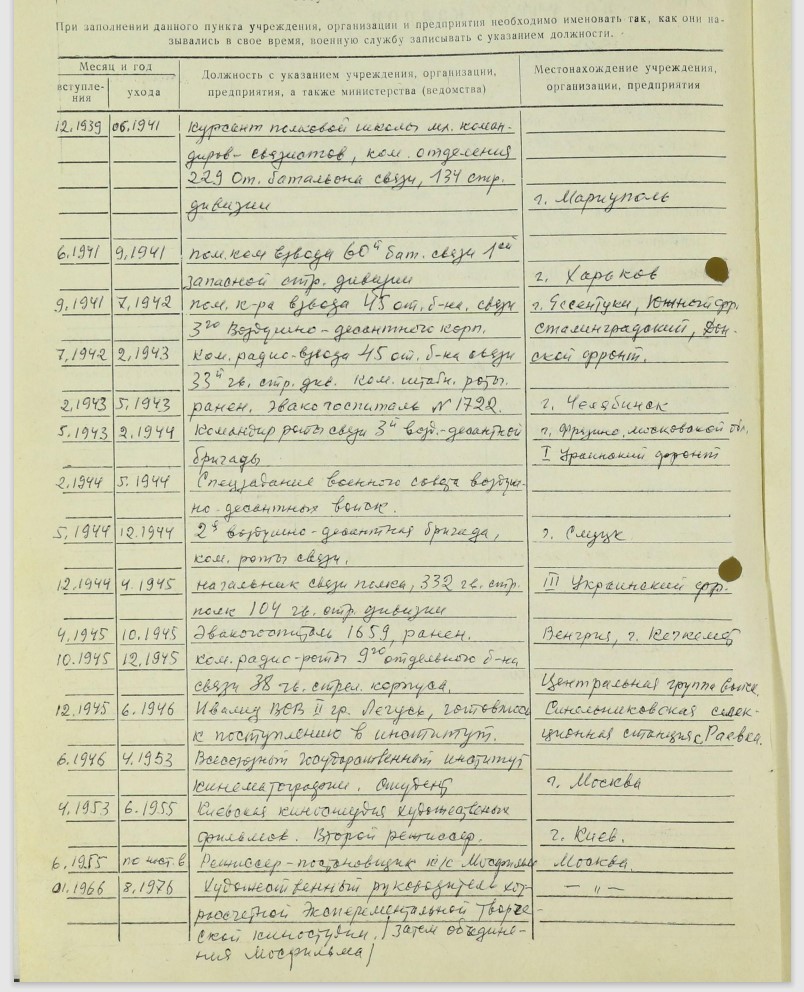 При заполнении данного пункта учреждения, организации и предприятия необходимо именовать так, как они на-
зывались в свое время, военную службу записывать с указанием должности.
Месяц и год
вступле-
ния
ухода
Должность с указанием учреждения, организации,
предприятия, а также министерства (ведомства)
Местонахождение учреждения,
организации, предприятия
12.1939 06.1941 Курсант полковой школы мл. коман-
диров-связистов, ком. отделения
229 От. батальона связи, 134 стр.
дивизии г. Мариуполь
6.1941 9.1941 пом. ком взвода 60й бат. связи 1ой
запасной стр. дивизии г. Харьков
9.1941 7.1942 пом. к-ра взвода 45 от. б-на. связи г. Ессентуки, Южный фр.
3го Воздушно-десантного корп. Сталинградский, Дон-
7.1942 2.1943 Ком. радио-взвода 45 от. б-на связи ской фронт.
33й гв. стр. див. Ком. штабн. роты.
2.1943 5.1943 ранен. Эвакогоспиталь N 1722. г. Челябинск
5.1943 2.1944 Командир роты связи 3й возд.-десантной г. Фрязино, московской обл.
бригады I Украинский фронт
2.1944 5.1944 Спецзадание военного совета воздуш-
но-десантных войск.
5.1944 12.1944 2я воздушно-десантная бригада, г. Слуцк
ком. роты связи.
12.1944 4.1945 начальник связи полка, 332 гв. стр. III Украинский фр.
полк 104 гв. стр. дивизии
4.1945 10.1945 Эвакогоспиталь 1659, ранен. Венгрия, г. Кечкемет
10.1945 12.1945 ком. радио-роты 9го отдельного б-на
связи 38 гв. стрел. корпуса. Центральная группа войск.
12.1945 6.1946 Инвалид ВОВ II гр. Лечусь, готовлюсь Синельниковская селек-
к поступлению в институт. ционная станция с. Раевка.
6.1946 4.1953 Всесоюзный Государственный институт
кинематографии. Студент г. Москва
4.1953 6.1955 Киевская киностудия художественых
фильмов. Второй режиссер. г. Киев.
6.1955 по наст. в. Режиссер-постановщик к/с Мосфильм Москва.
01.1966 8.1976 Художественный руководитель хоз- — " —
расчетной Эксперементальной Творче-
ской киностудии. /Затем объедине-
ния Мосфильма/